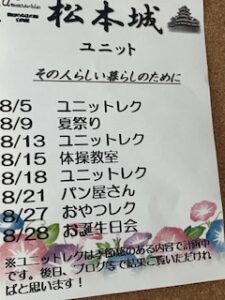 松本城
ユニット
その人らしい暮らしのために
8/5 ユニットレク
8/9 夏祭り
8/13 ユニットレク
8/15 体操教室
8/18 ユニットレク
8/21 パン屋さん
8/27 おやつレク
8/28 お誕生日会
※ユニットレクは季節感のある内容で計画中
です。後日、ブログ等で結果ご覧いただけれ
ばと思います！